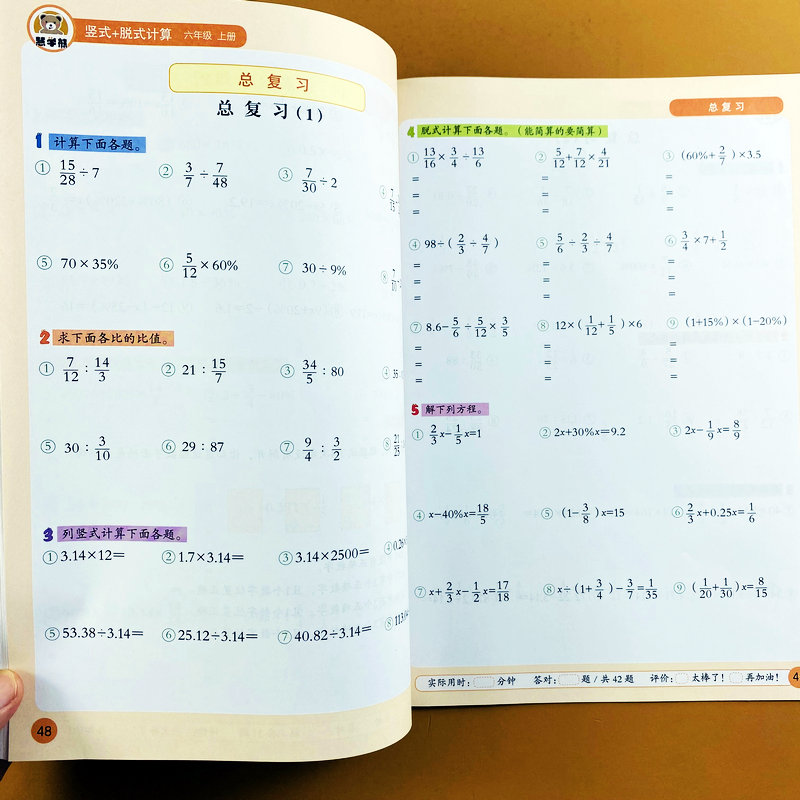 慧学熊
竖式+脱式计算 六年级 上册
总复习
总复习(1)
1 计算下面各题。
① 15/28÷7 ② 3/7÷7/48 ③ 7/30÷2 ④
⑤ 70×35% ⑥ 5/12×60% ⑦ 30÷9% ⑧
2 求下面各比的比值。
① 7/12:14/3 ② 21:15/7 ③ 34/5:80 ④ 35
⑤ 30:3/10 ⑥ 29:87 ⑦ 9/4:3/2 ⑧ 21/25
3 列竖式计算下面各题。
①3.14×12= ②1.7×3.14= ③3.14×2500= ④
⑤53.38÷3.14= ⑥25.12÷3.14= ⑦40.82÷3.14= ⑧
48
总复习
4 脱式计算下面各题。(能简算的要简算)
① 13/16×3/4÷13/6 ② 5/12+7/12×4/21 ③ (60%+2/7)×3.5
= = =
= = =
= = =
④ 98÷(2/3÷4/7) ⑤ 5/6÷2/3÷4/7 ⑥ 3/4×7+1/2
= = =
= = =
= = =
⑦ 8.6-5/6÷5/12×3/5 ⑧ 12×(1/12+1/5)×6 ⑨ (1+15%)×(1-20%)
= = =
= = =
= = =
5 解下列方程。
① 2/3x-1/5x=1 ② 2x+30%x=9.2 ③ 2x-1/9x=8/9
④ x-40%x=18/5 ⑤ (1-3/8)x=15 ⑥ 2/3x+0.25x=1/6
⑦ x+2/3x-1/2x=17/18 ⑧ x÷(1+3/4)-3/7=1/35 ⑨ (1/20+1/30)x=8/15
实际用时: 分钟 答对: 题/共42题 评价: 太棒了! 再加油!